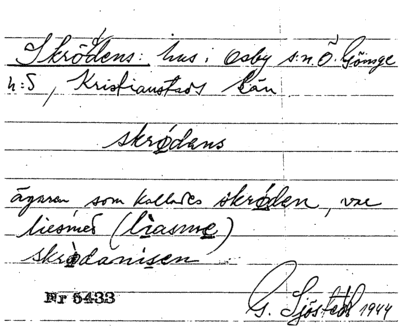 Skrödens: hus i Osby s:n Ö. Göinge
h:d, Kristianstads län
skrödens
ägaren som kallades skröden, var
liesmed (liasme)
skrödanisen
Nr 5433
G. Sjöstedt 1944